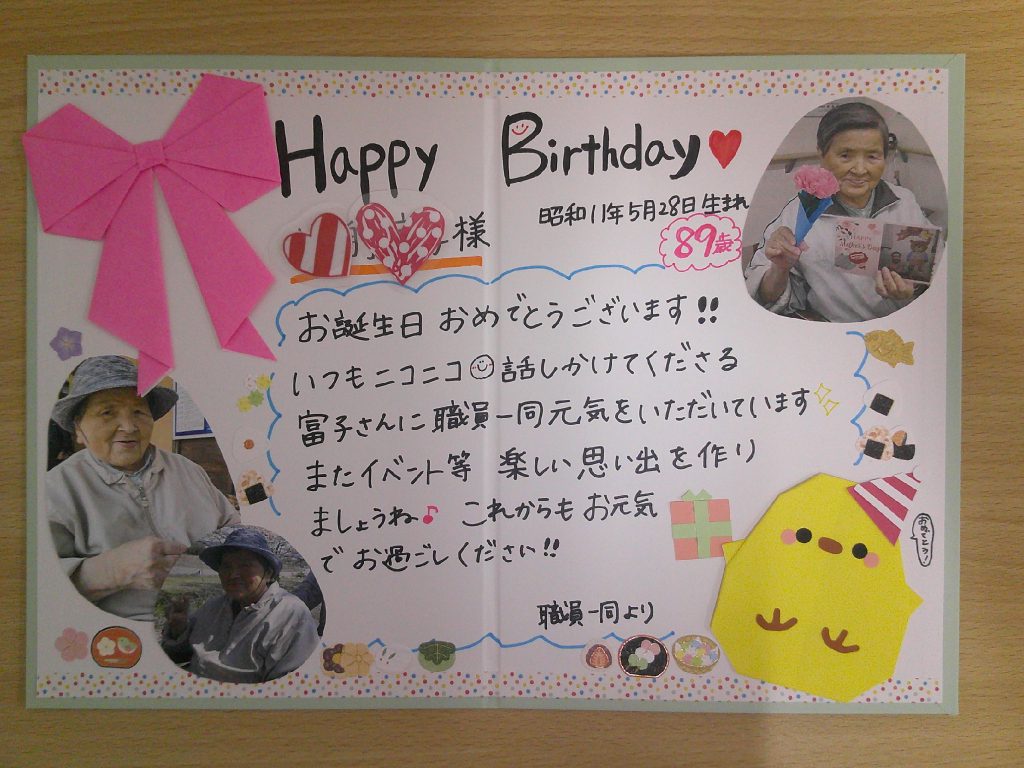 Happy Birthday
様
昭和11年5月28日生まれ
89歳
お誕生日 おめでとうございます!!
いつもニコニコ 話しかけてくださる
富子さんに職員一同元気をいただいています
またイベント等 楽しい思い出を作り
ましょうね♪ これからもお元気
で お過ごしください!!
職員一同より
おめでとう!
Happy
Mother's Day